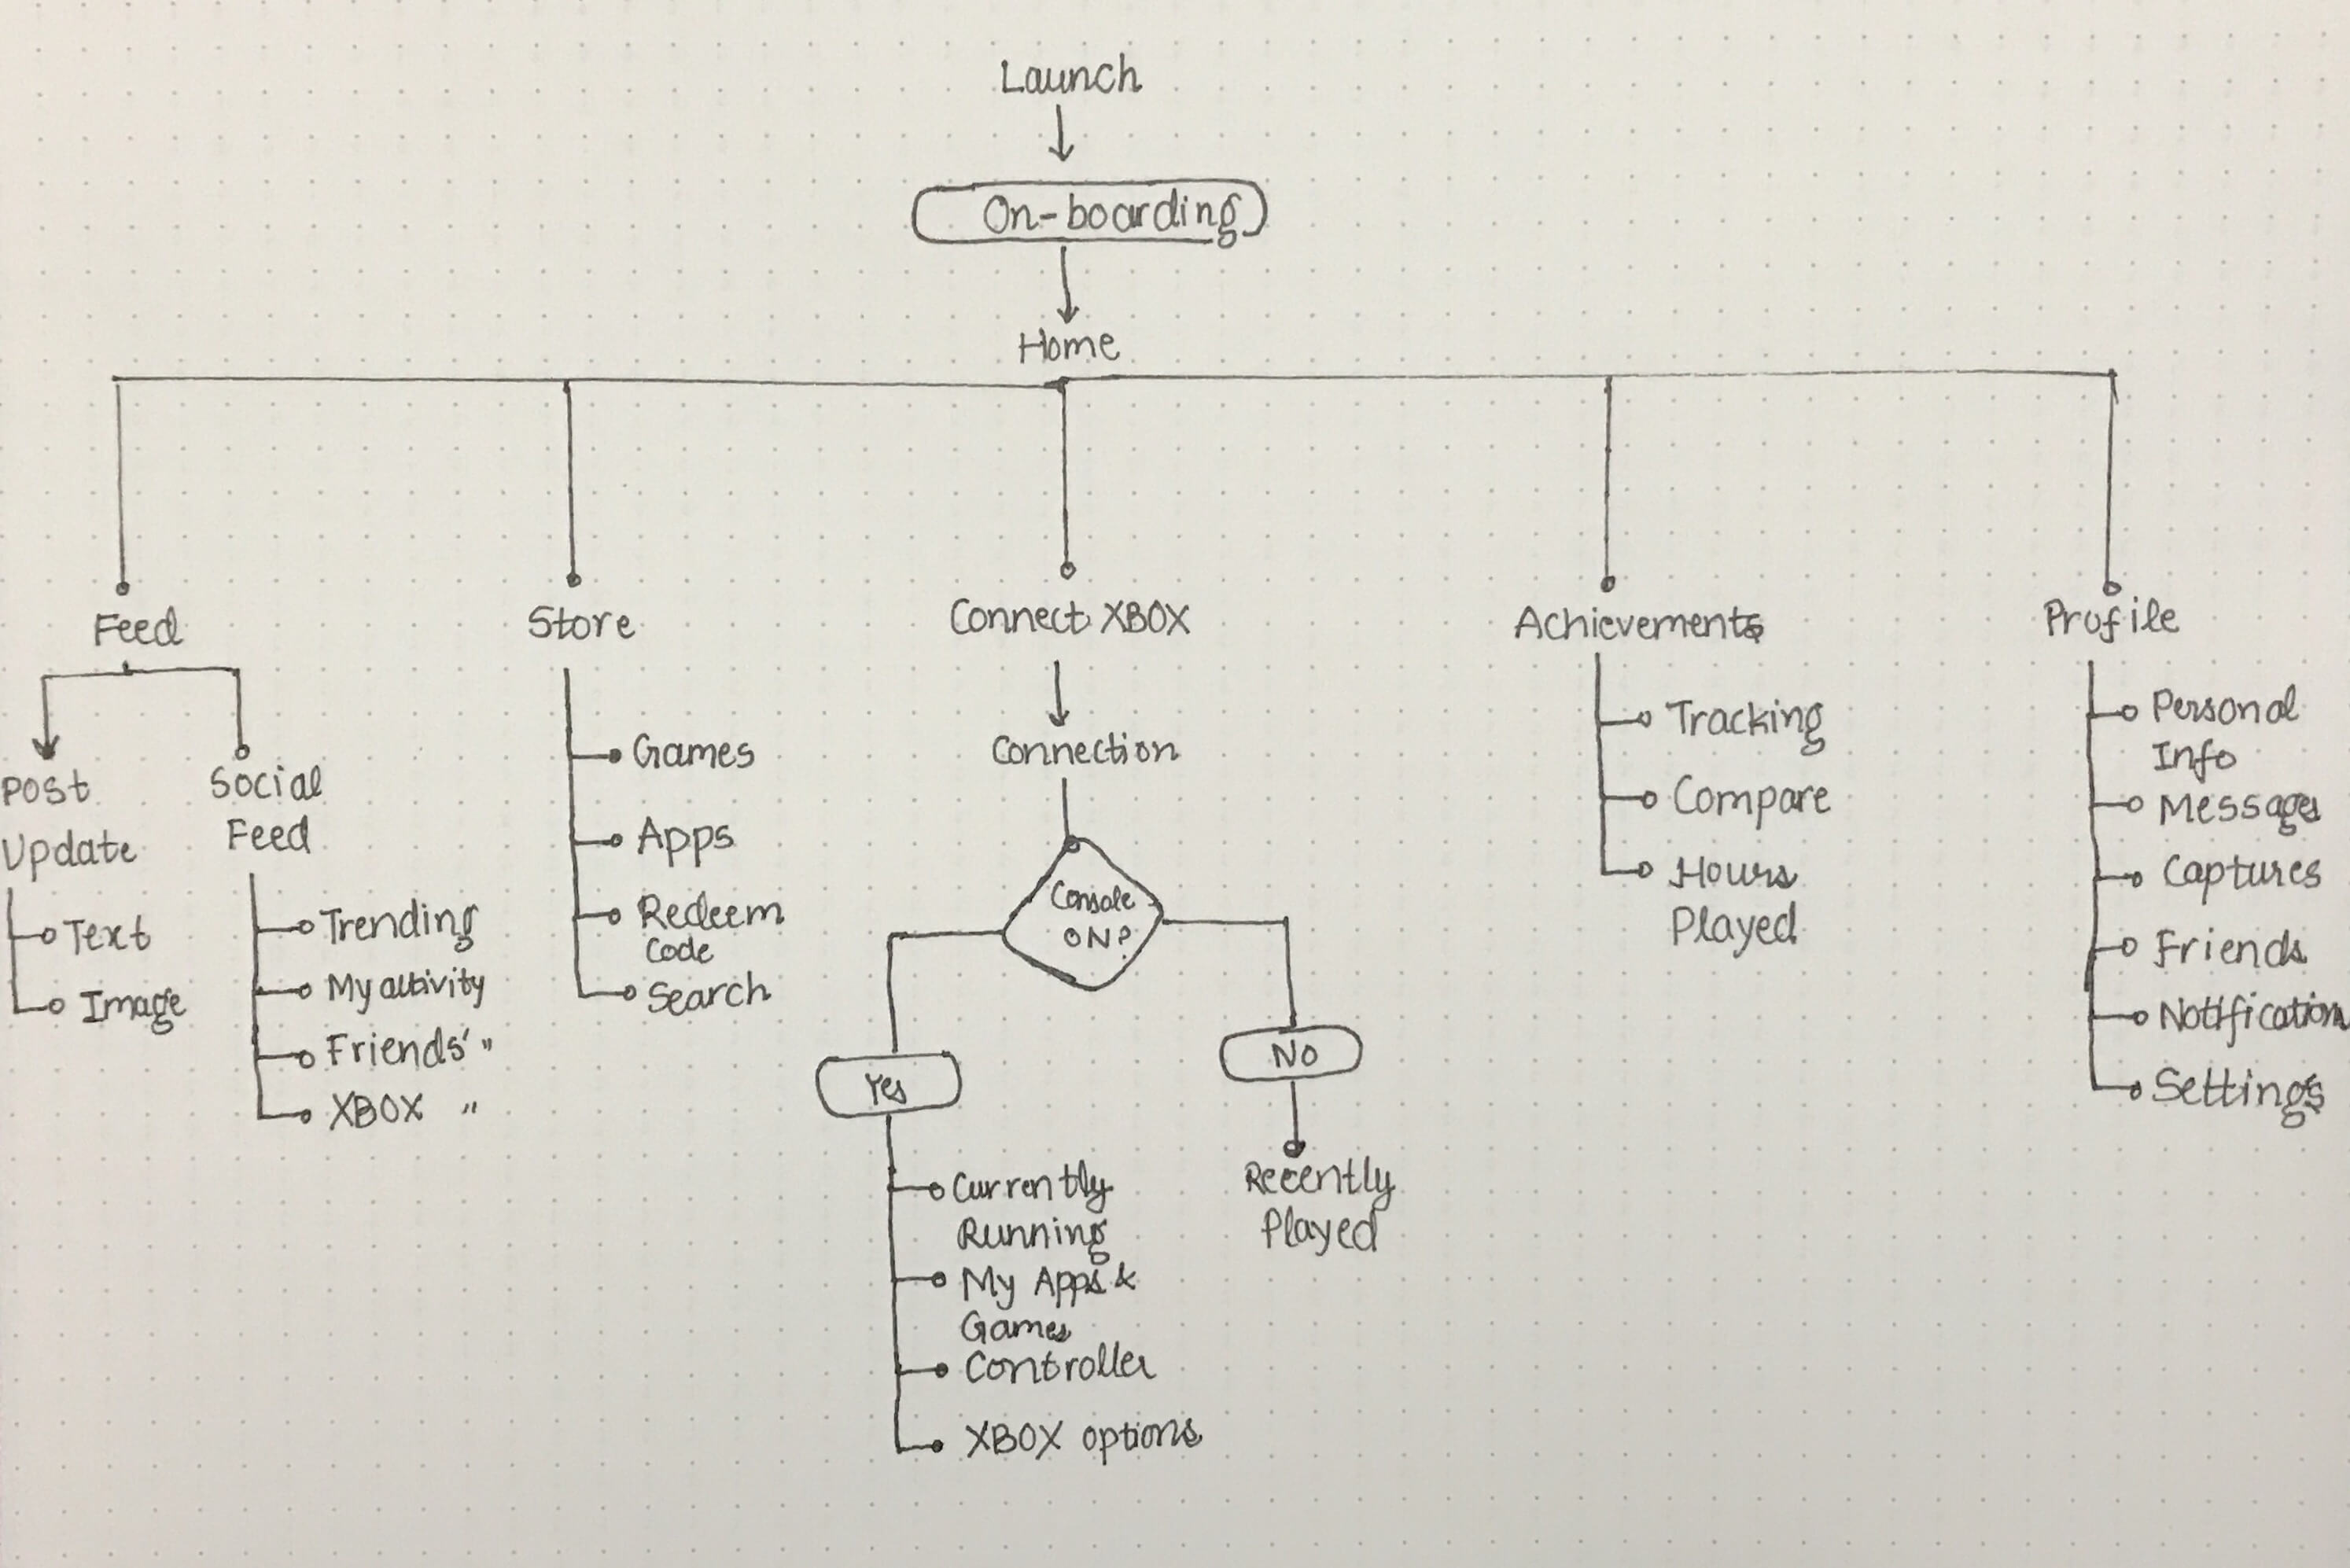 Launch
On-boarding
Home
Feed
Post
Update
Text
Image
Social
Feed
Trending
My activity
Friends' "
XBOX "
Store
Games
Apps
Redeem
Code
Search
Connect XBOX
Connection
Console
ON?
Yes
Currently
Running
My Apps &
Games
Controller
XBOX options
NO
Recently
Played
Achievements
Tracking
Compare
Hours
Played
Profile
Personal
Info
Messages
Captures
Friends
Notification
Settings